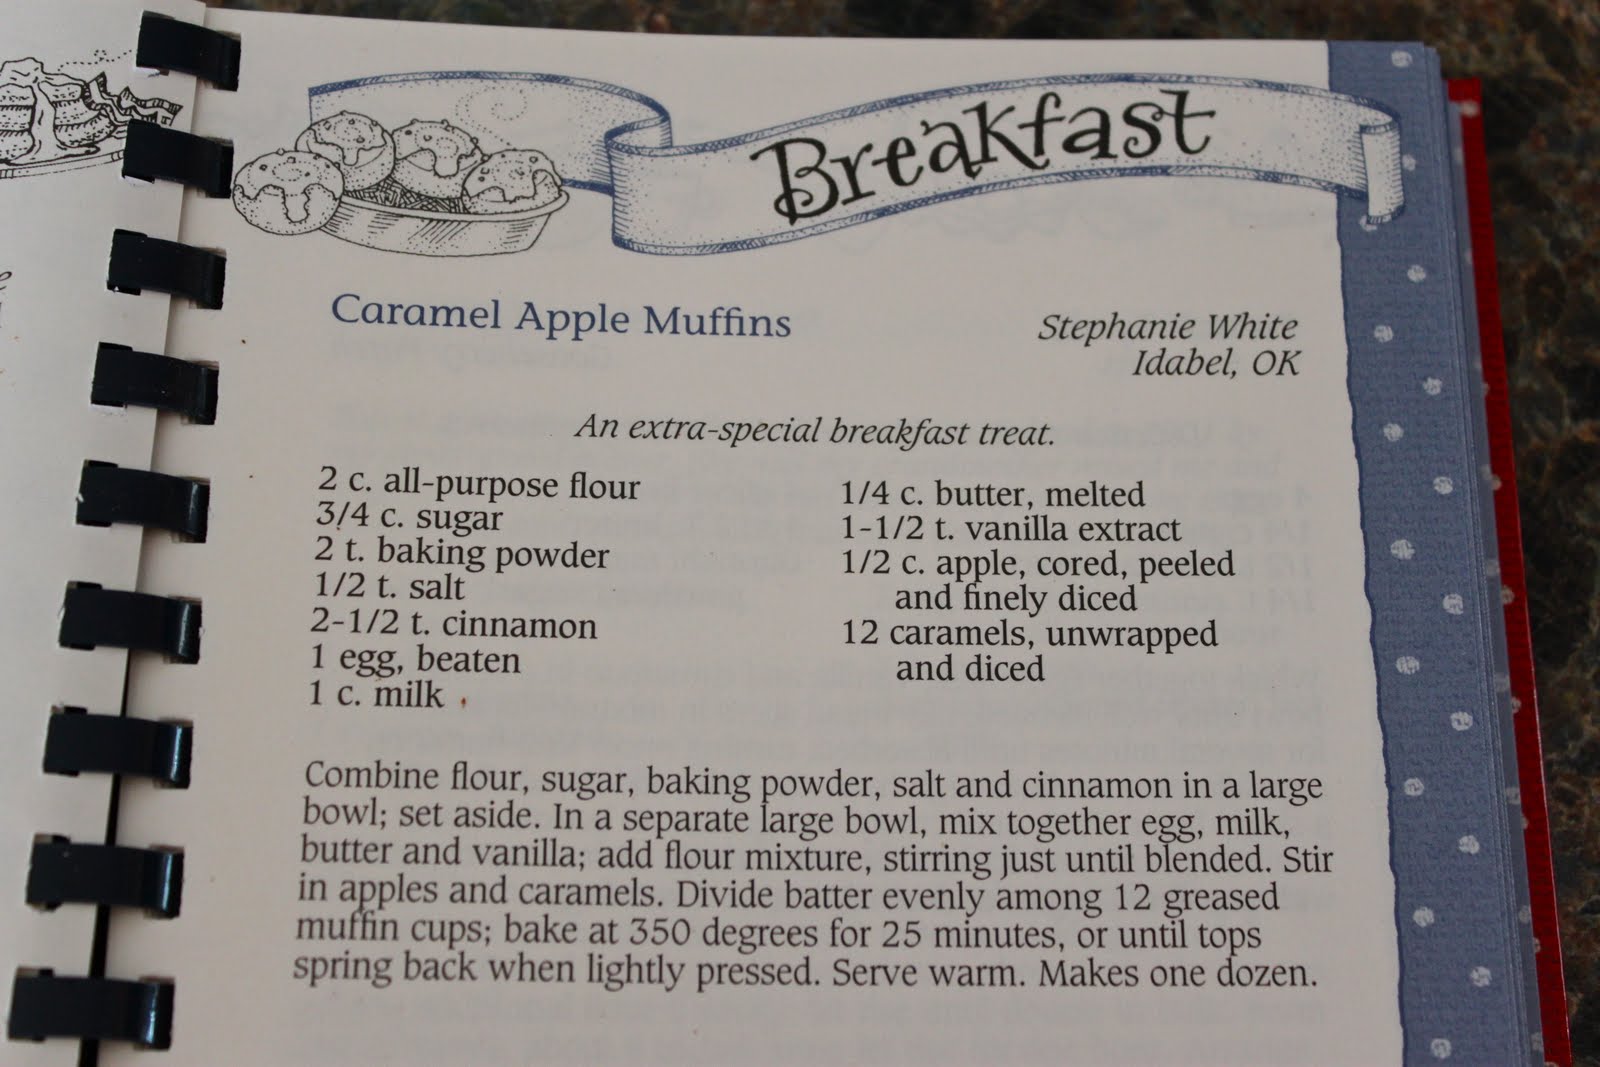 Breakfast
Caramel Apple Muffins
Stephanie White
Idabel, OK
An extra-special breakfast treat.
2 c. all-purpose flour
3/4 c. sugar
2 t. baking powder
1/2 t. salt
2-1/2 t. cinnamon
1 egg, beaten
1 c. milk
1/4 c. butter, melted
1-1/2 t. vanilla extract
1/2 c. apple, cored, peeled
and finely diced
12 caramels, unwrapped
and diced
Combine flour, sugar, baking powder, salt and cinnamon in a large
bowl; set aside. In a separate large bowl, mix together egg, milk,
butter and vanilla; add flour mixture, stirring just until blended. Stir
in apples and caramels. Divide batter evenly among 12 greased
muffin cups; bake at 350 degrees for 25 minutes, or until tops
spring back when lightly pressed. Serve warm. Makes one dozen.